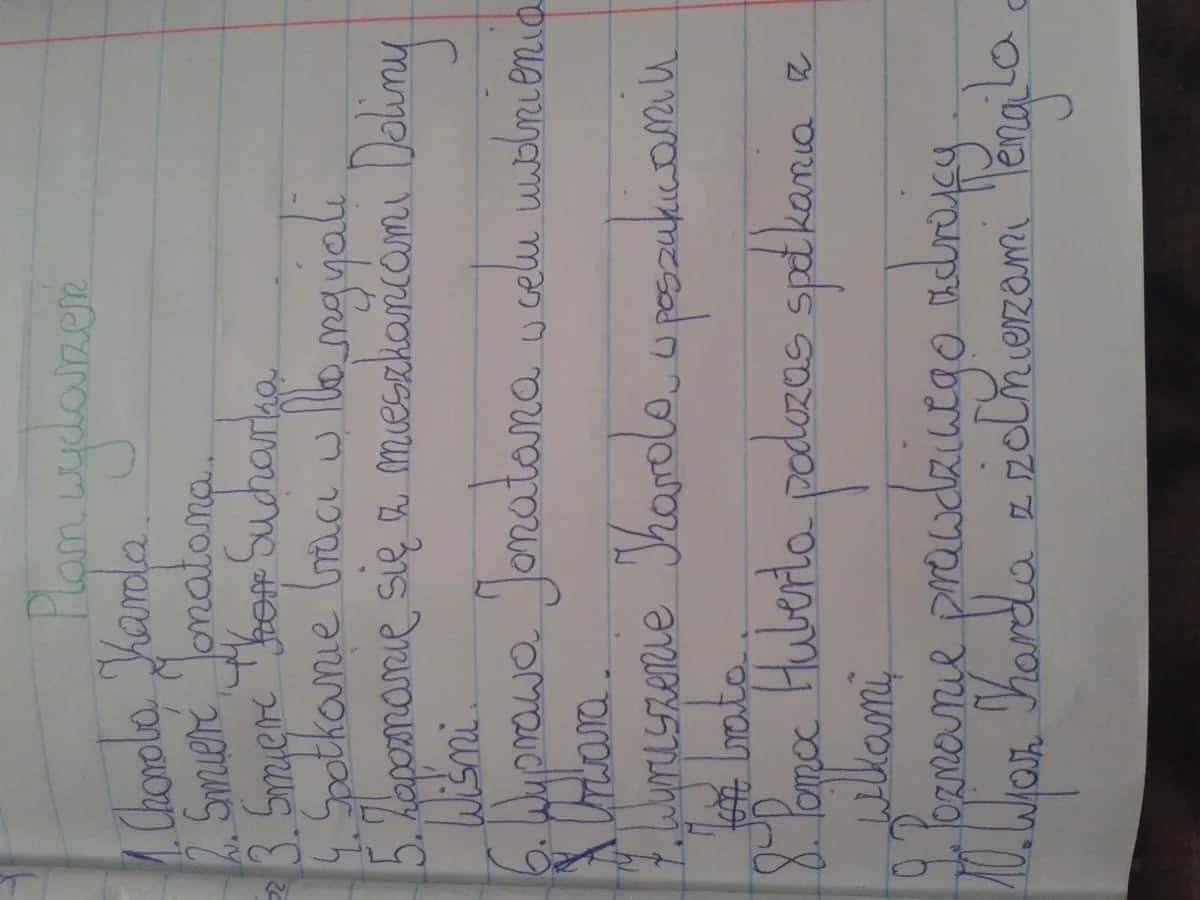 Plan wydarzeń
1. Choroba Karola.
2. Śmierć Jonatana.
3. Śmierć Sucharka.
4. Spotkanie braci w Nangijali
5. Zapoznanie się z mieszkańcami Doliny
Wiśni.
6. Wyprawa Jonatana w celu uwolnienia
Orwara.
7. Wyruszenie Karola w poszukiwaniu
brata.
8. Pomoc Huberta podczas spotkania z
wilkami
9. Poznanie prawdziwego zdrajcy.
10. Wjaz Karola z żołnierzami Tengila